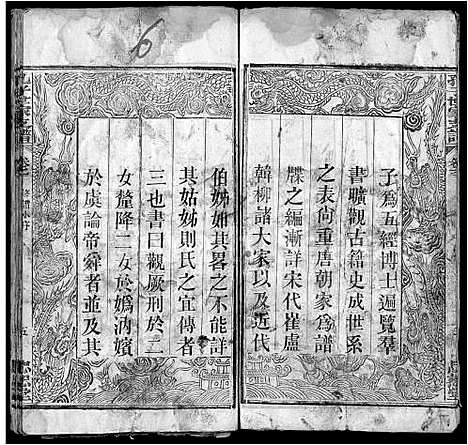 子爲五經博士遍覽羣
書曠觀古籍史成世系
之表尙重唐朝家爲譜
牒之編漸詳宋代崔盧
韓柳諸大家以及近代
6
伯姊如其畧之不能詳
其姑姊則氏之宜傳者
三也書曰觀厥刑於二
女釐降二女於嬀汭嬪
於虞論帝舜者並及其
五